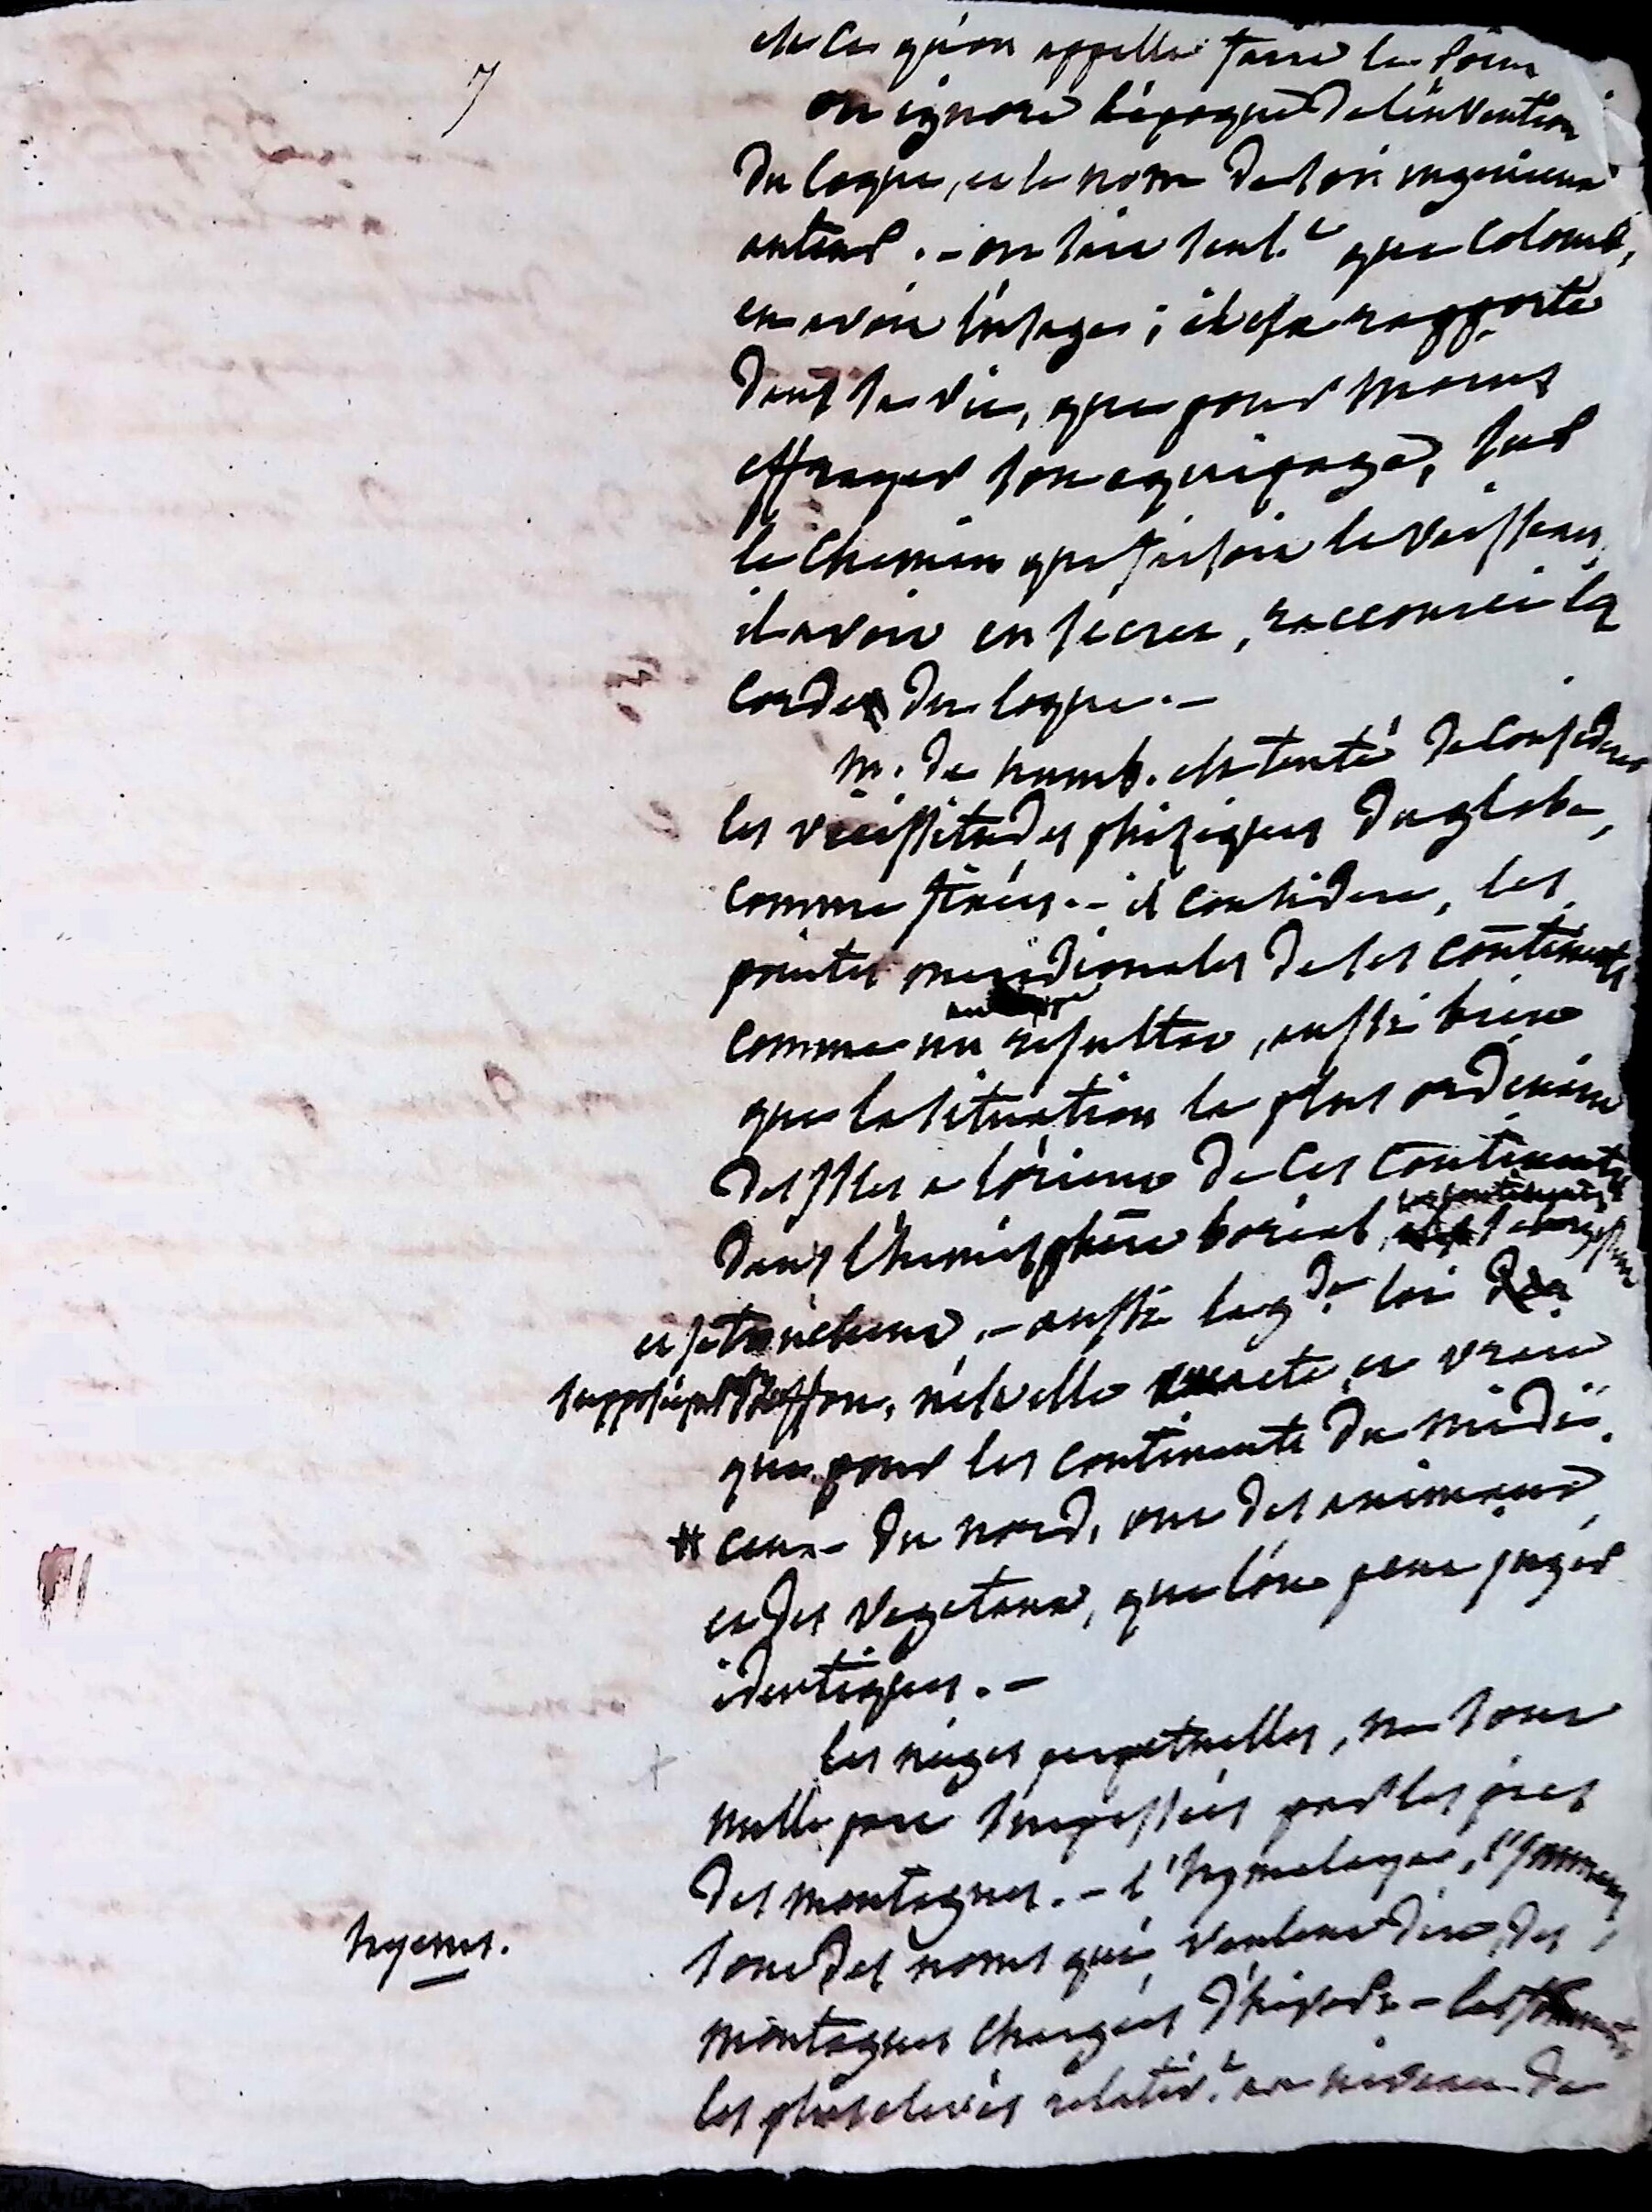 7
est ce qu'on appelle faire le point
on ignore l'époque de l'invention
du loque, et le nom de son ingenieux
auteur. - on sait seul.t que Colomb,
en avoit l'usage ; il est rapporté
dans sa vie, que pour moins
effrayer son equipage, sur
le chemin que faisoit le vaisseau,
il avoit en secret, raccourci la
corde du loque. -
m. de humb. est tenté de considerer
les vicissitudes phisiques du globe,
comme finies. - il considere, les
pointes meridionales de ses continents
comme un resultat, aussi bien
que la situation la plus ordinaire
des isles a l'orient de ces continents
dans l'hemisphere boréal,
et - aussi la g.de loi
supposée Buffon, n'est elle exacte, et vraie
que pour les continents du midi.
# ceux du nord, ont des animaux,
et des vegetaux, que l'on peut juger
identiques. -
les neiges perpetuelles, ne sont
nulle part surpassées par les pics
des montagnes. - l'hymalaya,
sont des noms qui veulent dire, des
montagnes chargées d'hivers - les
les plus elevés relativ.t au niveau de
hyems.